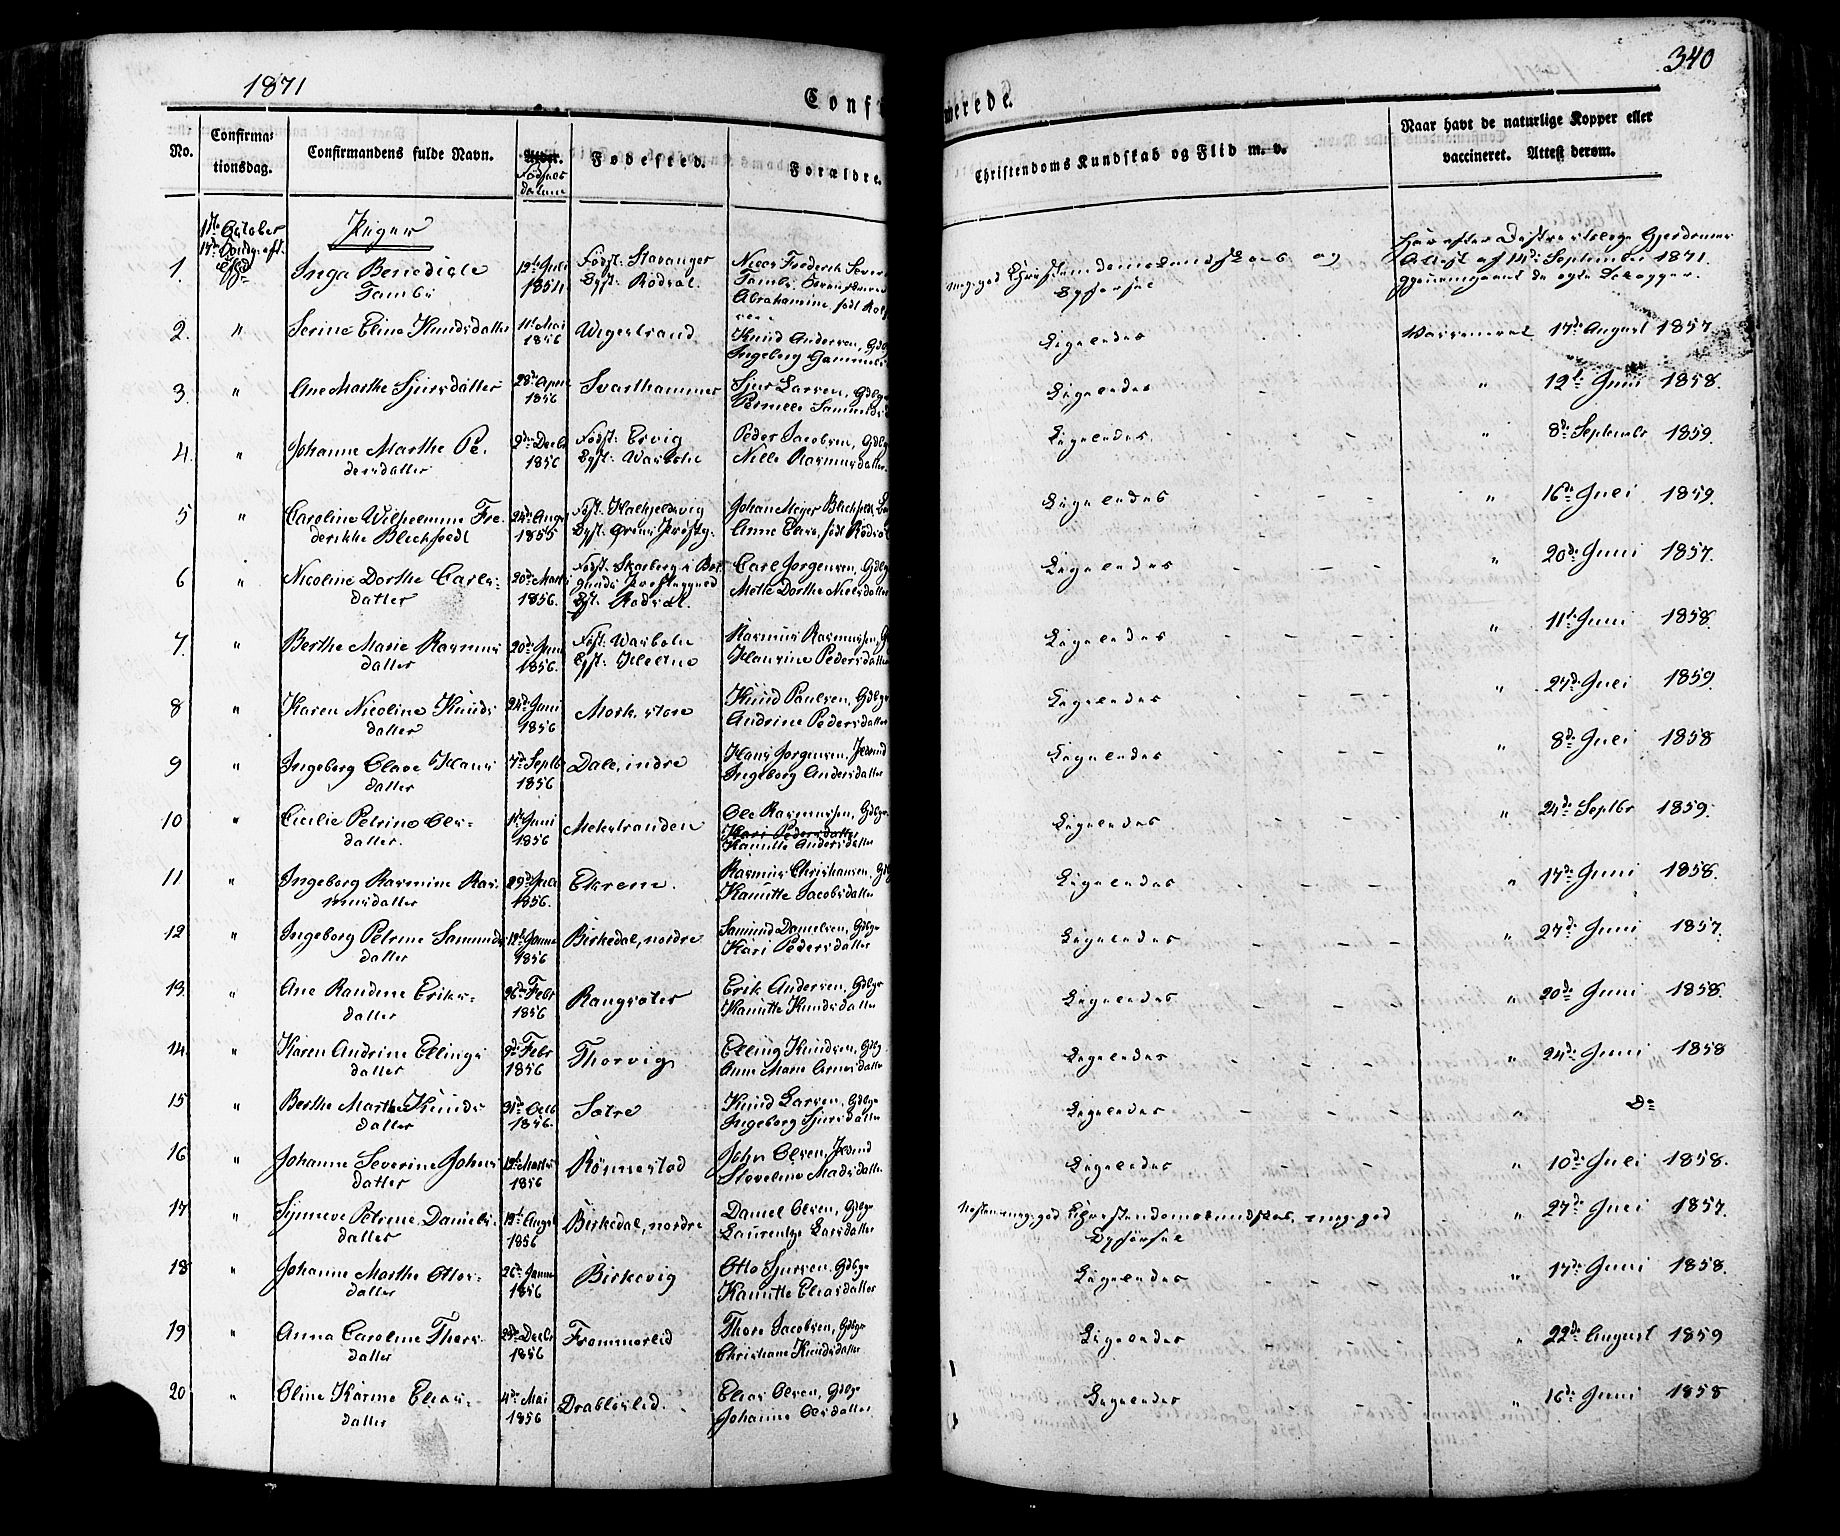 1871
340
Confi
merede.
No.
Confirma-
tionsdag.
Confirmandens fulde Navn.
Alder.
Fødsels
datum
Fødested.
Forældre.
Christendoms Kundskab og Flid m. v.
Naar havt de naturlige Kopper eller
vaccineret. Attest derom.
1ste October
17de Søndg. eft.
Piger
1.
Inga Benedicte
Tambs
12te Juli
Fødst: Stavanger
Opf: Rødsæt.
Niels Frederik Severin
Tambs
Abrahamine, født
meg. god Christendomskundskab og
Opførsel
Attest af 14de September 1871.
2.
"
Serine Eline Knudsdatter
11te Mai
1856
Wegerstrand
Knud Andersen, Gdbr
Ingeborg Gammels
Ligeledes
Vaccineret 17de August 1857.
3.
"
Ane Marthe Sjursdatter
28de April
1856
Svarthammer
Sjur Larsen, Gdbr
Pernille Samuelsd
Ligeledes
" 12te Juni 1858.
4.
"
Johanne Marthe Pe-
dersdatter
9de Decbr
1856
Fødst: Ervig
Opf: Warholm
Peder Jacobsen, Gdbr
Nille Rasmusdatter
Ligeledes
" 8de Septembr 1859.
5
"
Caroline Wilhelmine Fre-
derikke Blichfeldt
24de Aug
1855
Opf: Ørens Præstg.
Johan Meyer Blichfeldt
Anne Elise, født Rødsæt
Ligeledes
" 16de Juli 1859.
6
"
Nicoline Dorthe Carls-
datter
20de Marts
1856.
Opf: Rødsæt.
Carl Jørgensen, Gdbr
Mette Dorthe Nielsdatter
Ligeledes
" 20de Juni 1857.
7.
"
Berthe Marie Rasmus
datter
20de Juni
1856.
Rasmus Rasmussen, G
Haurine Pedersdatter
Ligeledes
" 11te Juni 1858.
8
"
Karen Nicoline Knuds
datter
24de Juni
1856
Mork, store
Knud Paulsen, Gdbr
Andrine Pedersdatter
Ligeledes
" 24de Juli 1859.
9
"
Ingeborg Olave Hans
datter
7de Septbr
1856
Dale, indre
Hans Jørgensen, Jrsmd
Ingeborg Andersdatter
Ligeledes
" 8de Juli 1858
10
"
Cicilie Petrine Ols-
datter.
11te Juni
1856
Mekstranden
Ole Rasmussen, Gdbr
Kari Pedersdatter
Hanitte Andersdatter
Ligeledes
" 24de Septbr 1859.
11
"
Ingeborg Rasmine Ras-
musdatter
29de Juli
1856.
Ekrene.
Rasmus Christiansen, Gdb
Hanitte Jacobsdatter
Ligeledes
" 17de Juni 1858.
12
"
Ingeborg Petrine Samunds
datter
12te Janua
1856
Birkedal, nordre
Samund Danielsen, Gdbr
Kari Pedersdatter
Ligeledes
" 27de Juni 1857.
13.
"
Ane Randine Eriks-
datter
26de Febr
1856
Rangsæter
Erik Andersen, Gdbr
Hanitte Knudsdatter
Ligeledes
" 20de Juni 1858.
14.
"
Karen Andrine Ellings
datter
9de Febr
1856
Thorvig
Elling Knudsen, Gdbr
Anne Marie Arnesdatter
Ligeledes
" 24de Juni 1858
15
"
Berthe Marthe Knuds
datter
31te Octb
1856.
Sætre
Knud Larsen, Gdbr
Ingeborg Sjursdatter
Ligeledes
" Do
16
"
Johanne Severine Johns
datter
12te Marts
1856
Rønnestad
John Olsen, Jrsmd
Stoveline Madsdatter
Ligeledes
" 10de Juli 1858.
17
"
Synneve Petrine Daniels-
datter
13te Augst
1856
Birkedal, nordre
Daniel Olsen, Gdbr
Laurentze Larsdatter
Næsten meg. god Christendomskundskab, meg. god
Opførsel
" 27de Juli 1857.
18
"
Johanne Marthe Ottos-
datter
26de Janua
1856
Birkevig
Otto Sjursen, Gdbr
Hanitte Eliasdatter
Ligeledes
" 17de Juni 1858.
19
"
Anna Caroline Thors-
datter
23de Decbr
1856
Frommerlid
Thore Jacobsen, Gdbr
Christiane Knudsdatter
Ligeledes
" 22de August 1859
20
"
Oline Karine Elias-
datter
4de Mai
1856
Drabløslid.
Elias Olsen, Gdbr
Johanne Olsdatter
Ligeledes
" 16de Juni 1858